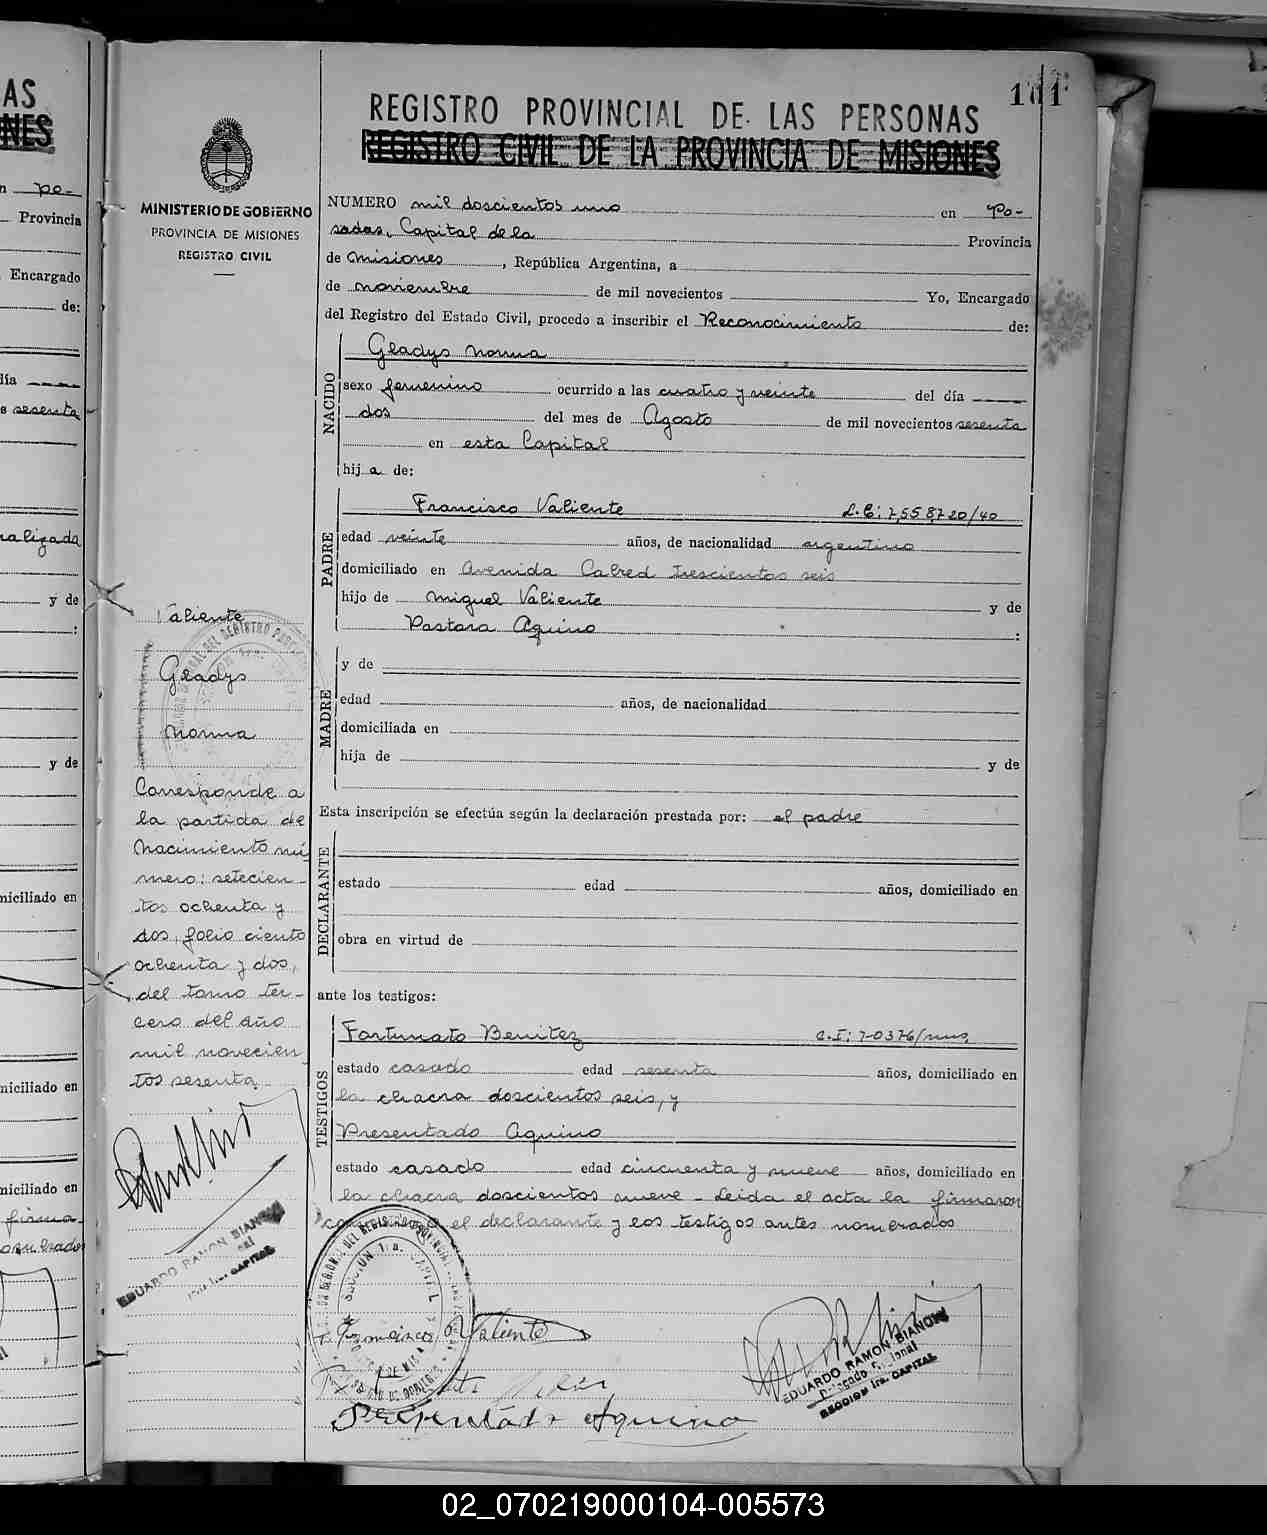 AS
NES
n po-
Provincia
Encargado
de:
día
s sesenta
nalizada
y de
:
y de
niciliado en
niciliado en
niciliado en
firma
ombrados
MINISTERIO DE GOBIERNO
PROVINCIA DE MISIONES
REGISTRO CIVIL
Valiente
Gladys
Norma
Corresponde a
la partida de
Nacimiento nú
mero: setecien-
tos ochenta y
dos, folio ciento
ochenta y dos,
del tomo ter-
cero del año
mil novecien
tos sesenta
EDUARDO RAMON BIANCHI
CAPITAL
101
REGISTRO PROVINCIAL DE LAS PERSONAS
REGISTRO CIVIL DE LA PROVINCIA DE MISIONES
NUMERO mil doscientos uno en Po-
sadas, Capital de la Provincia
de Misiones, República Argentina, a
de noviembre de mil novecientos Yo, Encargado
del Registro del Estado Civil, procedo a inscribir el Reconocimiento de:
NACIDO
Gladys Norma
sexo femenino ocurrido a las cuatro y veinte del día
dos del mes de Agosto de mil novecientos sesenta
en esta Capital
hija de:
PADRE
Francisco Valiente L.E: 7,558,720/40
edad veinte años, de nacionalidad argentino
domiciliado en Avenida Cabred trescientos seis
hijo de Miguel Valiente y de
Pastora Aquino :
MADRE
y de
edad años, de nacionalidad
domiciliada en
hija de y de
Esta inscripción se efectúa según la declaración prestada por: el padre
DECLARANTE
estado edad años, domiciliado en
obra en virtud de
ante los testigos:
TESTIGOS
Fortunato Benitez C.I: 70376/mns,
estado casado edad sesenta años, domiciliado en
la chacra doscientos seis, y
Presentado Aquino
estado casado edad cincuenta y nueve años, domiciliado en
la chacra doscientos nueve - Leida el acta la firmaron
el declarante y los testigos antes nombrados
SECCION 1ra. CAPITAL
Francisco Valiente
Presentado Aquino
EDUARDO RAMON BIANCHI
Delegado Regional
SECCION 1ra. CAPITAL
02_070219000104-005573